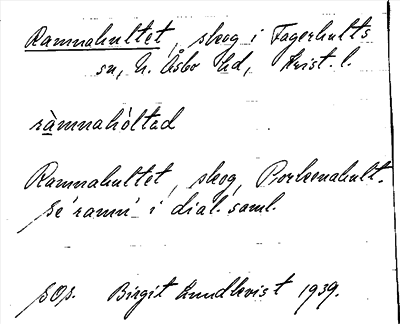 Ramnahultet, skog i Fagerhults
sn, N. Åsbo hd, Krist. l.
ràmnahòltad
Ramnahultet, skog, Porkenahult.
se 'ramn' i dial. saml.
SOp. Birgit Lundkvist 1939.